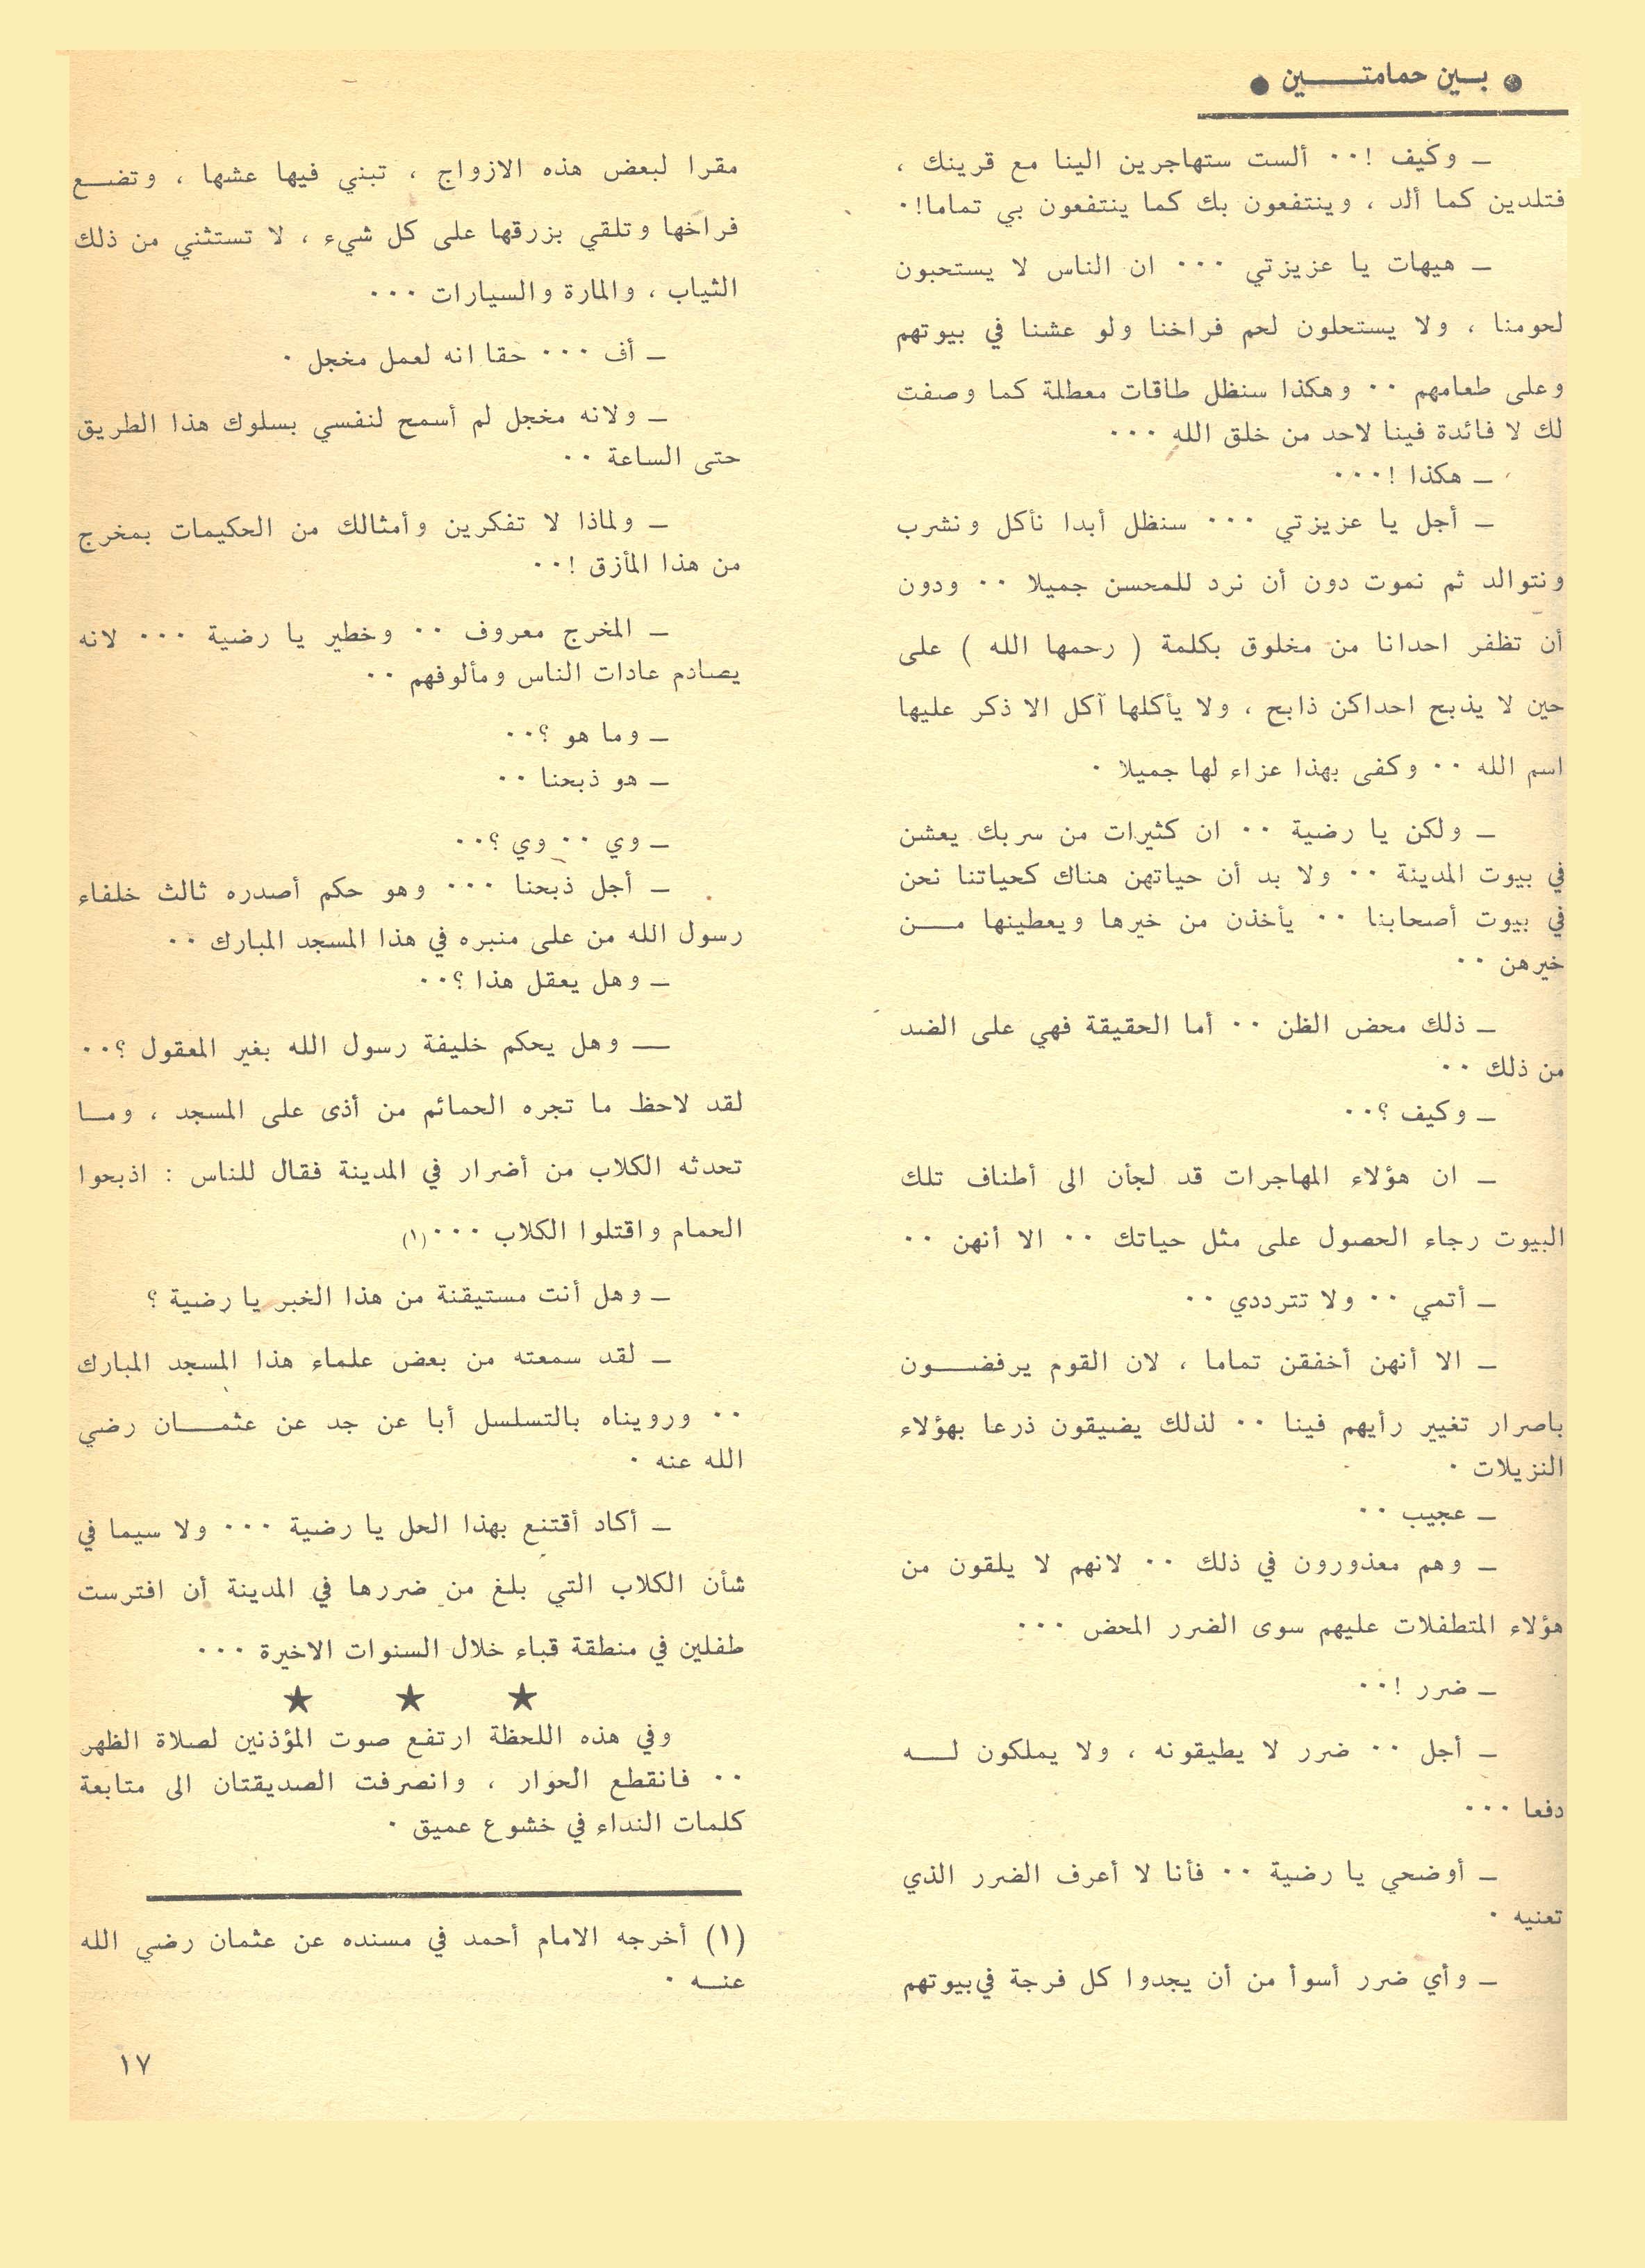 ● بـــين حمامتـــــين ●
ــ وكيف !٠٠ ألست ستهاجرين الينا مع قرينك ،
فتلدين كما ألد ، وينتفعون بك كما ينتفعون بي تماما!٠
ــ هيهات يا عزيزتي ٠٠٠ ان الناس لا يستحبون
لحومنا ، ولا يستحلون لحم فراخنا ولو عشنا في بيوتهم
وعلى طعامهم ٠٠ وهكذا سنظل طاقات معطلة كما وصفت
لك لا فائدة فينا لاحد من خلق الله ٠٠٠
ــ هكذا !٠٠٠
ــ أجل يا عزيزتي ٠٠٠ سنظل أبدا نأكل ونشرب
ونتوالد ثم نموت دون أن نرد للمحسن جميلا ٠٠ ودون
أن تظفر احدانا من مخلوق بكلمة ( رحمها الله ) على
حين لا يذبح احداكن ذابح ، ولا يأكلها آكل الا ذكر عليها
اسم الله ٠٠ وكفى بهذا عزاء لها جميلا ٠
ــ ولكن يا رضية ٠٠ ان كثيرات من سربك يعشن
في بيوت المدينة ٠٠ ولا بد أن حياتهن هناك كحياتنا نحن
في بيوت أصحابنا ٠٠ يأخذن من خيرها ويعطينها مـــن
خيرهن ٠٠
ــ ذلك محض الظن ٠٠ أما الحقيقة فهي على الضد
من ذلك ٠٠
ــ وكيف ؟٠٠
ــ ان هؤلاء المهاجرات قد لجأن الى أطناف تلك
البيوت رجاء الحصول على مثل حياتك ٠٠ الا أنهن ٠٠
ــ أتمي ٠٠ ولا تترددي ٠٠
ــ الا أنهن أخفقن تماما ، لان القوم يرفضـــون
باصرار تغيير رأيهم فينا ٠٠ لذلك يضيقون ذرعا بهؤلاء
النزيلات ٠
ــ عجيب ٠٠
ــ وهم معذورون في ذلك ٠٠ لانهم لا يلقون من
هؤلاء المتطفلات عليهم سوى الضرر المحض ٠٠٠
ــ ضرر !٠٠
ــ أجل ٠٠ ضرر لا يطيقونه ، ولا يملكون لـــه
دفعا ٠٠٠
ــ أوضحي يا رضية ٠٠ فأنا لا أعرف الضرر الذي
تعنيه ٠
ــ وأي ضرر أسوأ من أن يجدوا كل فرجة في بيوتهم
مقرا لبعض هذه الازواج ، تبني فيها عشها ، وتضـــع
فراخها وتلقي بزرقها على كل شيء ، لا تستثني من ذلك
الثياب ، والمارة والسيارات ٠٠٠
ــ أف ٠٠٠ حقا انه لعمل مخجل ٠
ــ ولانه مخجل لم أسمح لنفسي بسلوك هذا الطريق
حتى الساعة ٠٠
ــ ولماذا لا تفكرين وأمثالك من الحكيمات بمخرج
من هذا المأزق !٠٠
ــ المخرج معروف ٠٠ وخطير يا رضية ٠٠٠ لانه
يصادم عادات الناس ومألوفهم ٠٠
ــ وما هو ؟٠٠
ــ هو ذبحنا ٠٠
ــ وي ٠٠ وي ؟٠٠
ــ أجل ذبحنا ٠٠٠ وهو حكم أصدره ثالث خلفاء
رسول الله من على منبره في هذا المسجد المبارك ٠٠
ــ وهل يعقل هذا ؟٠٠
ــ وهل يحكم خليفة رسول الله بغير المعقول ؟٠٠
لقد لاحظ ما تجره الحمائم من أذى على المسجد ، ومـا
تحدثه الكلاب من أضرار في المدينة فقال للناس : اذبحوا
الحمام واقتلوا الكلاب ٠٠٠(١)
ــ وهل أنت مستيقنة من هذا الخبر يا رضية ؟
ــ لقد سمعته من بعض علماء هذا المسجد المبارك
٠٠ ورويناه بالتسلسل أبا عن جد عن عثمـــان رضي
الله عنه ٠
ــ أكاد أقتنع بهذا الحل يا رضية ٠٠٠ ولا سيما في
شأن الكلاب التي بلغ من ضررها في المدينة أن افترست
طفلين في منطقة قباء خلال السنوات الاخيرة ٠٠٠
★ ★ ★
وفي هذه اللحظة ارتفع صوت المؤذنين لصلاة الظهر
٠٠ فانقطع الحوار ، وانصرفت الصديقتان الى متابعة
كلمات النداء في خشوع عميق ٠
(١) أخرجه الامام أحمد في مسنده عن عثمان رضي الله
عنـــه ٠
١٧